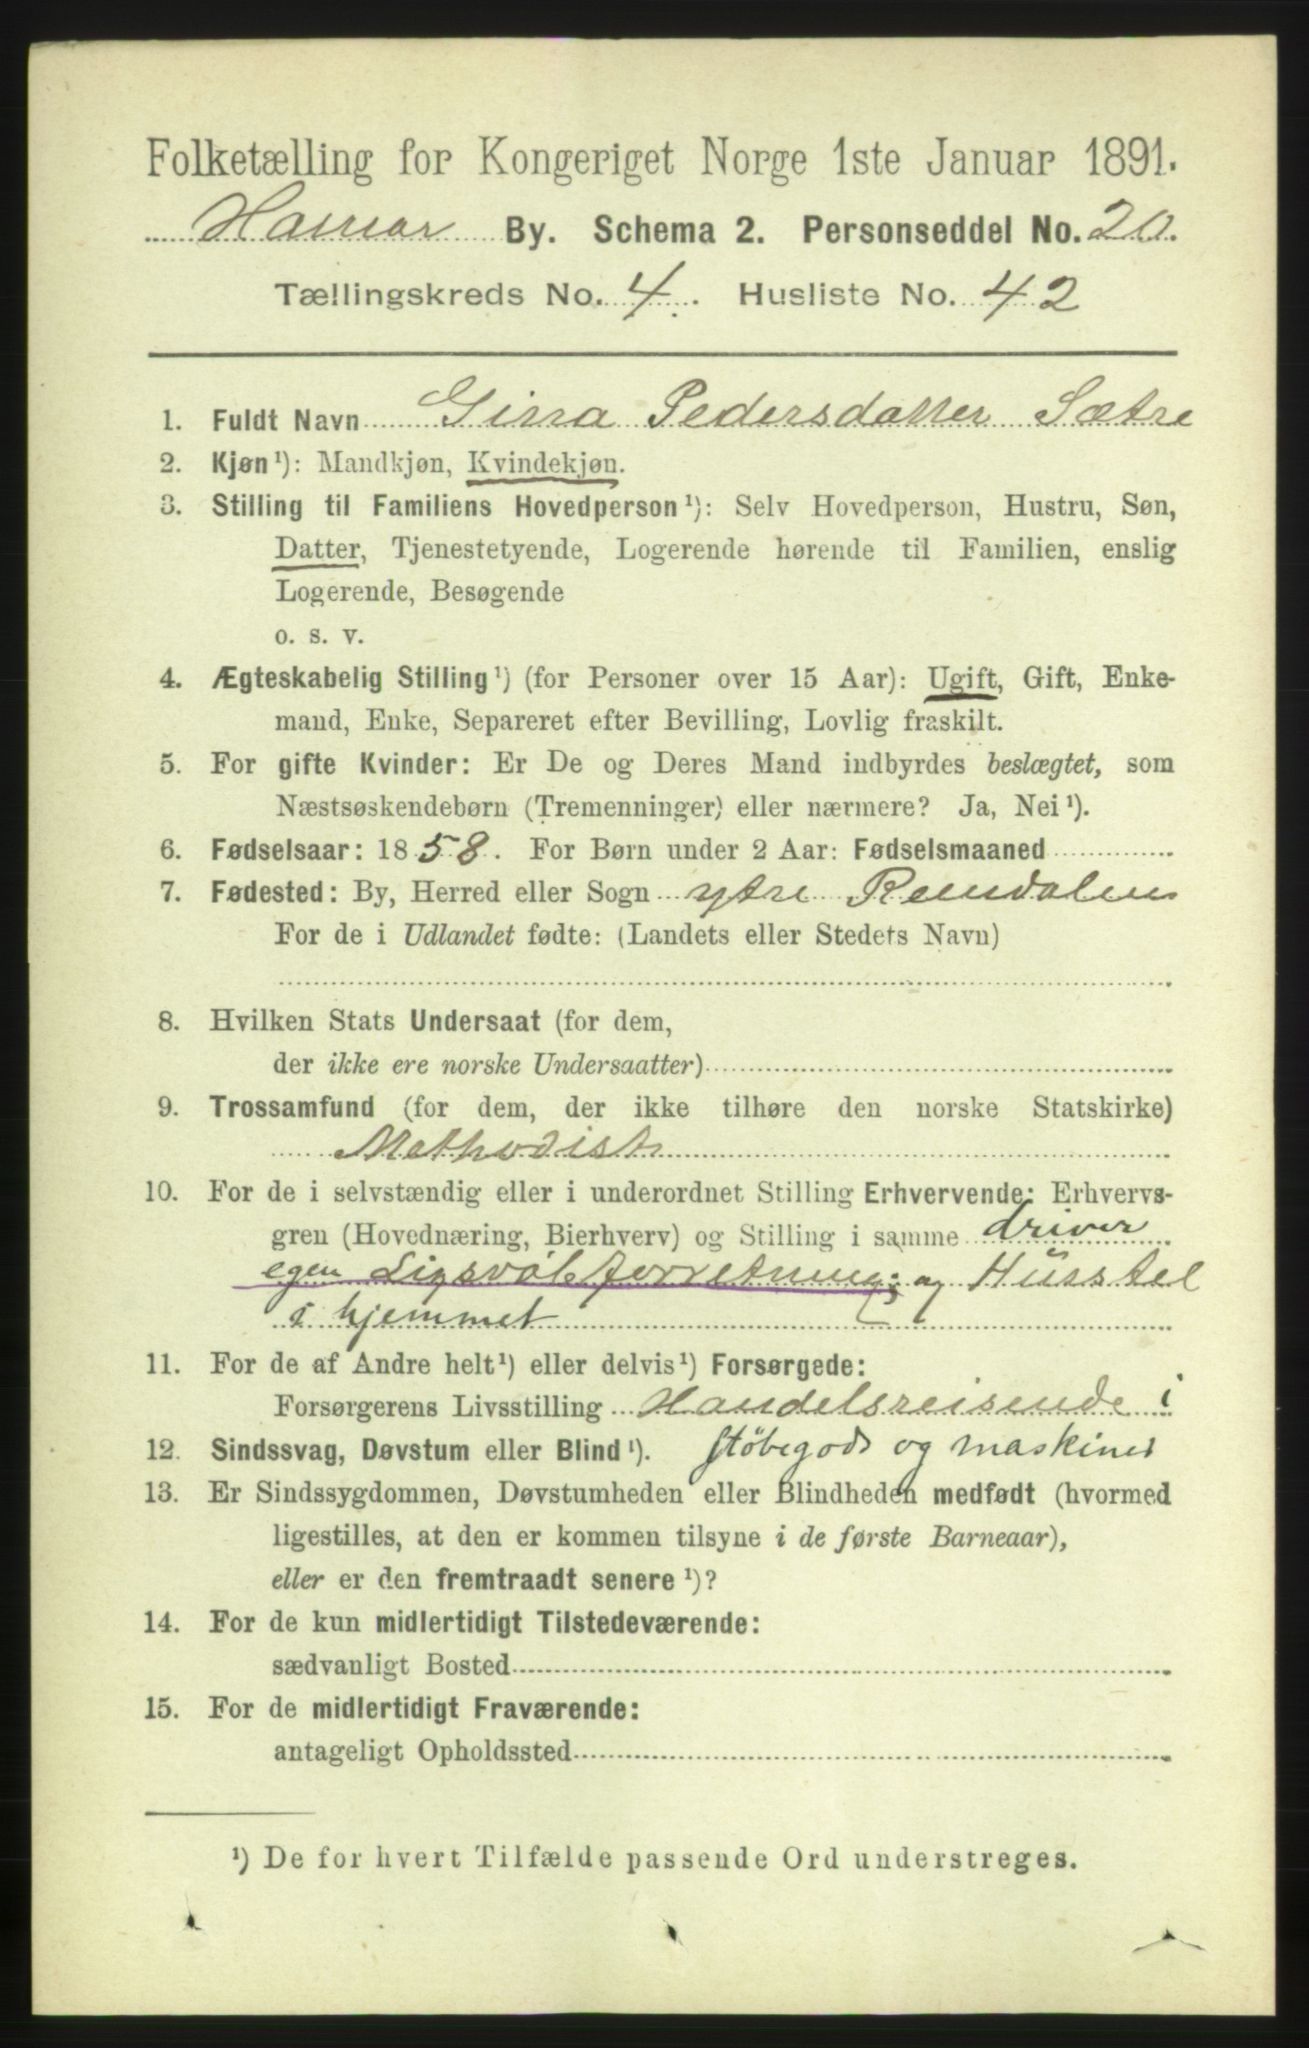 Folketælling for Kongeriget Norge 1ste Januar 1891.
Hamar By. Schema 2. Personseddel No. 20.
Tællingskreds No. 4. Husliste No. 42
1. Fuldt Navn Gina Pedersdatter Sætre
2. Kjøn ¹): Mandkjøn, Kvindekjøn.
3. Stilling til Familiens Hovedperson ¹): Selv Hovedperson, Hustru, Søn,
Datter, Tjenestetyende, Logerende hørende til Familien, enslig
Logerende, Besøgende
o. s. v.
4. Ægteskabelig Stilling ¹) (for Personer over 15 Aar): Ugift, Gift, Enke-
mand, Enke, Separeret efter Bevilling, Lovlig fraskilt.
5. For gifte Kvinder: Er De og Deres Mand indbyrdes beslægtet, som
Næstsøskendebørn (Tremenninger) eller nærmere? Ja, Nei ¹).
6. Fødselsaar: 1858. For Børn under 2 Aar: Fødselsmaaned
7. Fødested: By, Herred eller Sogn ytre Rendalen
For de i Udlandet fødte: (Landets eller Stedets Navn)
8. Hvilken Stats Undersaat (for dem,
der ikke ere norske Undersaatter)
9. Trossamfund (for dem, der ikke tilhøre den norske Statskirke)
Methodist
10. For de i selvstændig eller i underordnet Stilling Erhvervende: Erhvervs-
gren (Hovednæring, Bierhverv) og Stilling i samme driver
egen forretning; og Husstel
i hjemmet
11. For de af Andre helt ¹) eller delvis ¹) Forsørgede:
Forsørgerens Livsstilling Handelsreisende i
12. Sindssvag, Døvstum eller Blind ¹). støbegods og maskiner
13. Er Sindssygdommen, Døvstumheden eller Blindheden medfødt (hvormed
ligestilles, at den er kommen tilsyne i de første Barneaar),
eller er den fremtraadt senere ¹)?
14. For de kun midlertidigt Tilstedeværende:
sædvanligt Bosted
15. For de midlertidigt Fraværende:
antageligt Opholdssted
¹) De for hvert Tilfælde passende Ord understreges.